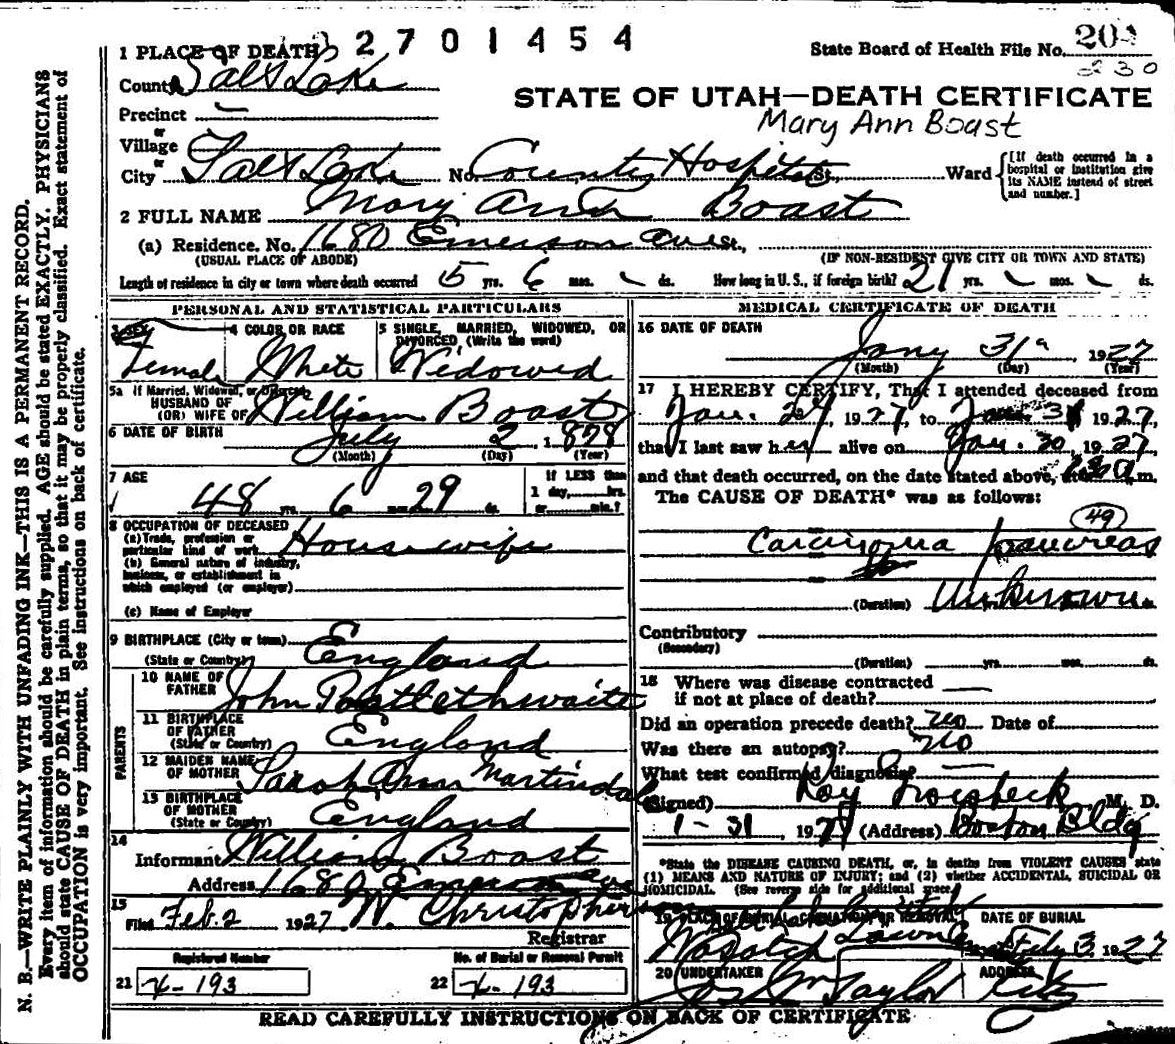 2 7 0 1 4 5 4
State Board of Health File No. 20
230
1 PLACE OF DEATH
County Salt Lake
STATE OF UTAH—DEATH CERTIFICATE
Precinct —
Mary Ann Boast
or
Village
or
City Salt Lake No. County Hospital St., Ward
[If death occurred in a hospital or institution give its NAME instead of street and number.]
2 FULL NAME Mary Ann Boast
(a) Residence. No. 1680 Emerson Ave St.,
(USUAL PLACE OF ABODE) (IF NON-RESIDENT GIVE CITY OR TOWN AND STATE)
Length of residence in city or town where death occurred 5 yrs. 6 mos. ds. How long in U. S., if foreign birth? 21 yrs. mos. ds.
PERSONAL AND STATISTICAL PARTICULARS
3 SEX 4 COLOR OR RACE 5 SINGLE, MARRIED, WIDOWED, OR DIVORCED (Write the word)
Female White Widowed
5a If Married, Widowed, or Divorced
HUSBAND OF
(OR) WIFE OF William Boast
6 DATE OF BIRTH July 2 1878
(Month) (Day) (Year)
7 AGE If LESS than
48 yrs. 6 mos. 29 ds. 1 day, hrs.
or min.?
8 OCCUPATION OF DECEASED
(a) Trade, profession or
particular kind of work Housewife
(b) General nature of industry,
business, or establishment in
which employed (or employer)
(c) Name of Employer
9 BIRTHPLACE (City or town)
(State or Country) England
PARENTS
10 NAME OF FATHER John Postlethwaite
11 BIRTHPLACE OF FATHER
(State or Country) England
12 MAIDEN NAME OF MOTHER Sarah Ann Martindale
13 BIRTHPLACE OF MOTHER
(State or Country) England
14
Informant William Boast
Address 1680 Emerson Ave
15
Filed Feb. 2 1927 W. Christopherson
Registrar
Registered Number No. of Burial or Removal Permit
21 193 22 193
MEDICAL CERTIFICATE OF DEATH
16 DATE OF DEATH
Jany 31 , 1927
(Month) (Day) (Year)
17 I HEREBY CERTIFY, That I attended deceased from
Jan. 1927, to Jan 31 1927,
that I last saw her alive on Jan. 30 1927
and that death occurred, on the date stated above, at m.
The CAUSE OF DEATH* was as follows:
49
Carcinoma pancreas
(Duration) Unknown
Contributory
(Secondary)
(Duration) yrs. mos. ds.
18 Where was disease contracted
if not at place of death?
Did an operation precede death? no Date of
Was there an autopsy? no
What test confirmed diagnosis?
(Signed) Roy Groesbeck M. D.
1-31, 1927 (Address) Boston Bldg
*State the DISEASE CAUSING DEATH, or, in deaths from VIOLENT CAUSES state
(1) MEANS AND NATURE OF INJURY; and (2) whether ACCIDENTAL, SUICIDAL OR
HOMICIDAL. (See reverse side for additional space.)
19 PLACE OF BURIAL, CREMATION OR REMOVAL DATE OF BURIAL
Wasatch Lawn Feby 3 1927
20 UNDERTAKER ADDRESS
Jos Wm Taylor City
READ CAREFULLY INSTRUCTIONS ON BACK OF CERTIFICATE
N. B.—WRITE PLAINLY WITH UNFADING INK—THIS IS A PERMANENT RECORD.
Every item of information should be carefully supplied. AGE should be stated EXACTLY. PHYSICIANS
should state CAUSE OF DEATH in plain terms, so that it may be properly classified. Exact statement of
OCCUPATION is very important. See instructions on back of certificate.